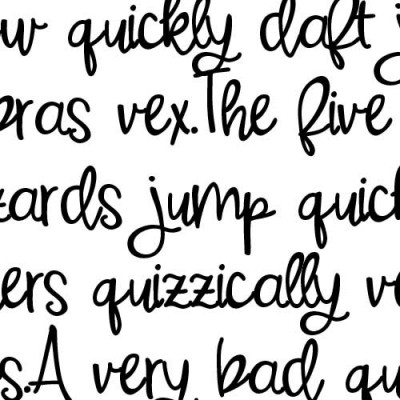 w quickly daft j
bras vex.The five
zards jump quick
ers quizzically ve
s.A very bad qu